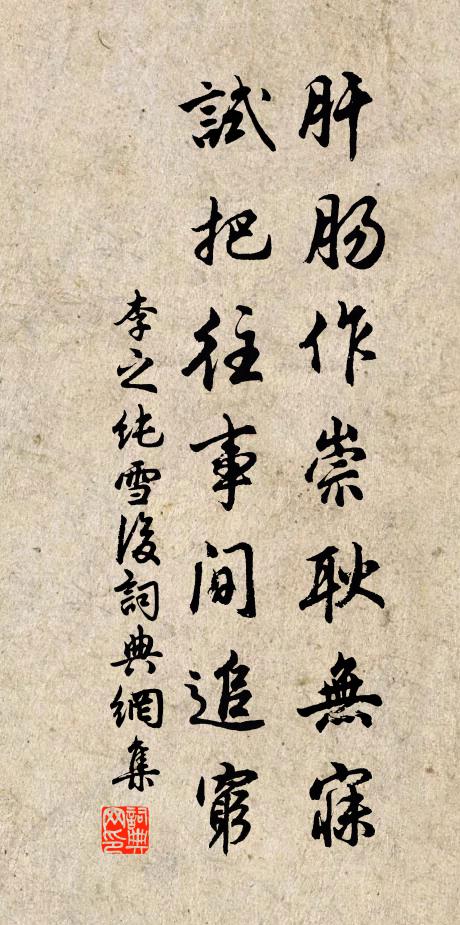 肝腸作祟耿無寐
試把往事間追窮
李之純雪後詞典網集
詞典网印